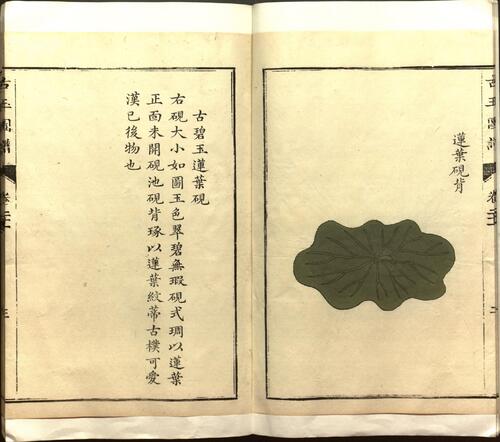 古玉圖譜
卷
蓮葉硯背
古碧玉蓮葉硯
右硯大小如圖玉色翠碧無瑕硯式琱以蓮葉
正面未開硯池硯背琢以蓮葉紋蒂古樸可愛
漢已後物也
古玉圖譜
卷